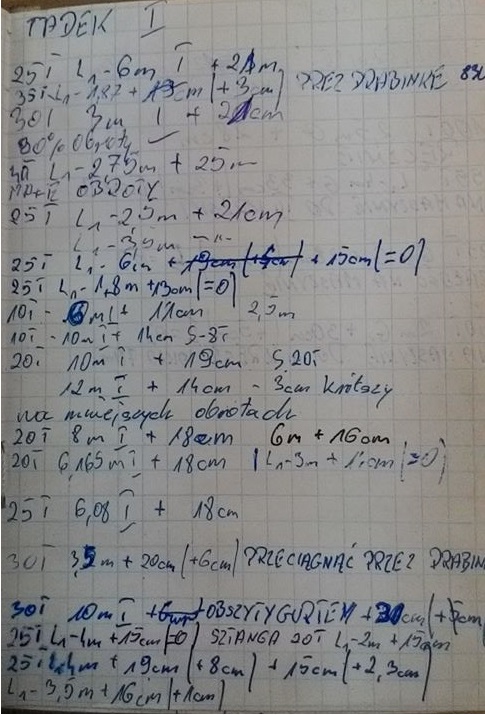 TADEK I
25T L1-6m I + 21m
35T L1-1,87 + 15cm (+3cm) PRZEZ DRABINKĘ
30T 3m I + 21cm
80% Obroty
3T L1-275m + 25m
OBROTY
25T L1-2,5m + 21cm
L1-3,5m -"-
25T L1-6m + 19cm (+5cm) + 15cm (=0)
25T L1-1,8m + 13cm (=0)
10T - 6m I + 11cm 2,5m
10T - 10m I + 14cm S-8T
20T 10m I + 19cm S 20T
12m I + 14cm - 3cm krótszy
na mniejszych obrotach
20T 8m I + 18cm 6m + 16cm
20T 6,165m I + 18cm L1-3m + 1.cm (=0)
25T 6,08 I + 18cm
30T 3,5m + 20cm (+6cm) PRZECIĄGNĄĆ PRZEZ DRABIN
30T 10m I + OBSZYTY GURTEM + 30cm (+5cm
25T L1-4m + 15cm (=0) SZTANGA 20T L1-2m + 15cm
25T L1-4m + 19cm (+8cm) + 15cm (+2,3cm)
L1-3,5m + 16cm (+1cm)